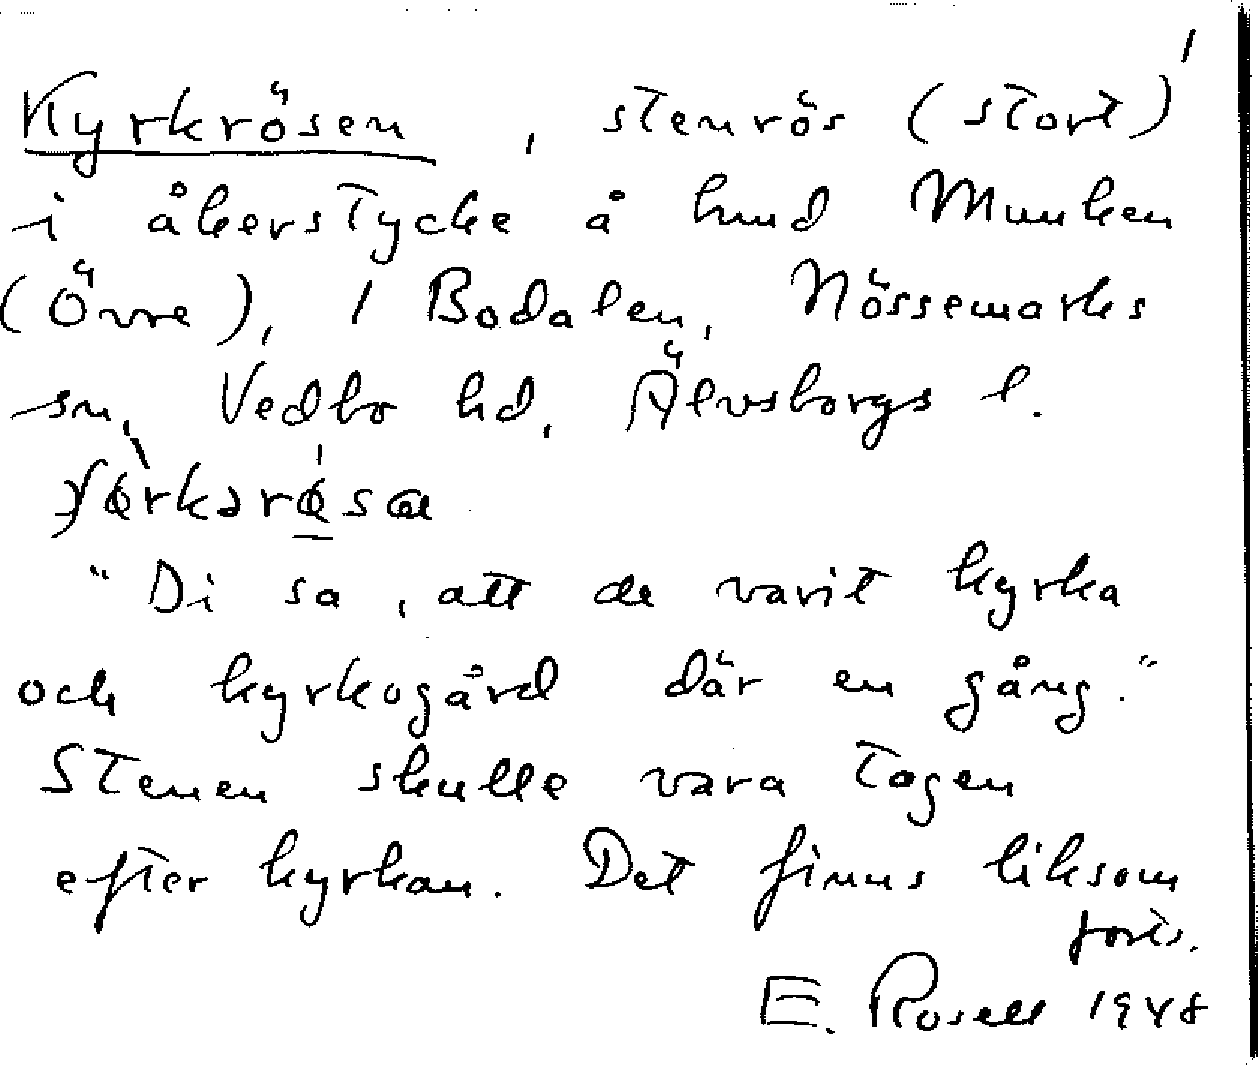 1
Kyrkrösen, stenrös (stort)
i åkerstycke å hmd Munken
(Övre), 1 Bodalen, Nössemarks
sn, Vedbo hd, Älvsborgs l.
"Di sa, att de varit kyrka
och kyrkogård där en gång."
Stenen skulle vara tagen
efter kyrkan. Det finns liksom
forts.
E. Rosell 1948